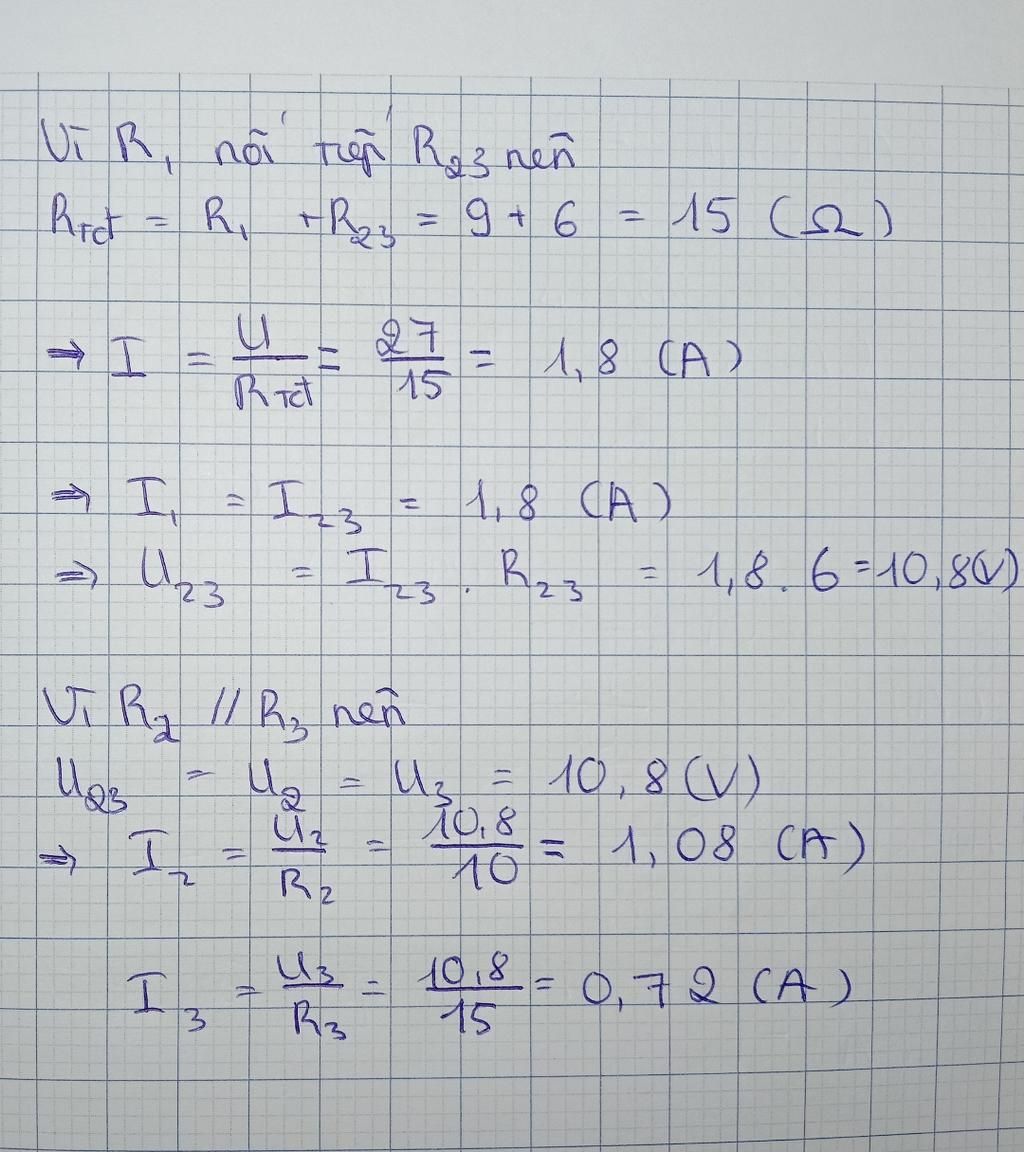 Vì R₁ nối tiếp R₂₃ nên
R_tđ = R₁ + R₂₃ = 9 + 6 = 15 (Ω)
⇒ I = U/R_tđ = 27/15 = 1,8 (A)
⇒ I₁ = I₂₃ = 1,8 (A)
⇒ U₂₃ = I₂₃ . R₂₃ = 1,8 . 6 = 10,8(V)
Vì R₂ // R₃ nên
U₂₃ = U₂ = U₃ = 10,8 (V)
⇒ I₂ = U₂/R₂ = 10,8/10 = 1,08 (A)
I₃ = U₃/R₃ = 10,8/15 = 0,72 (A)